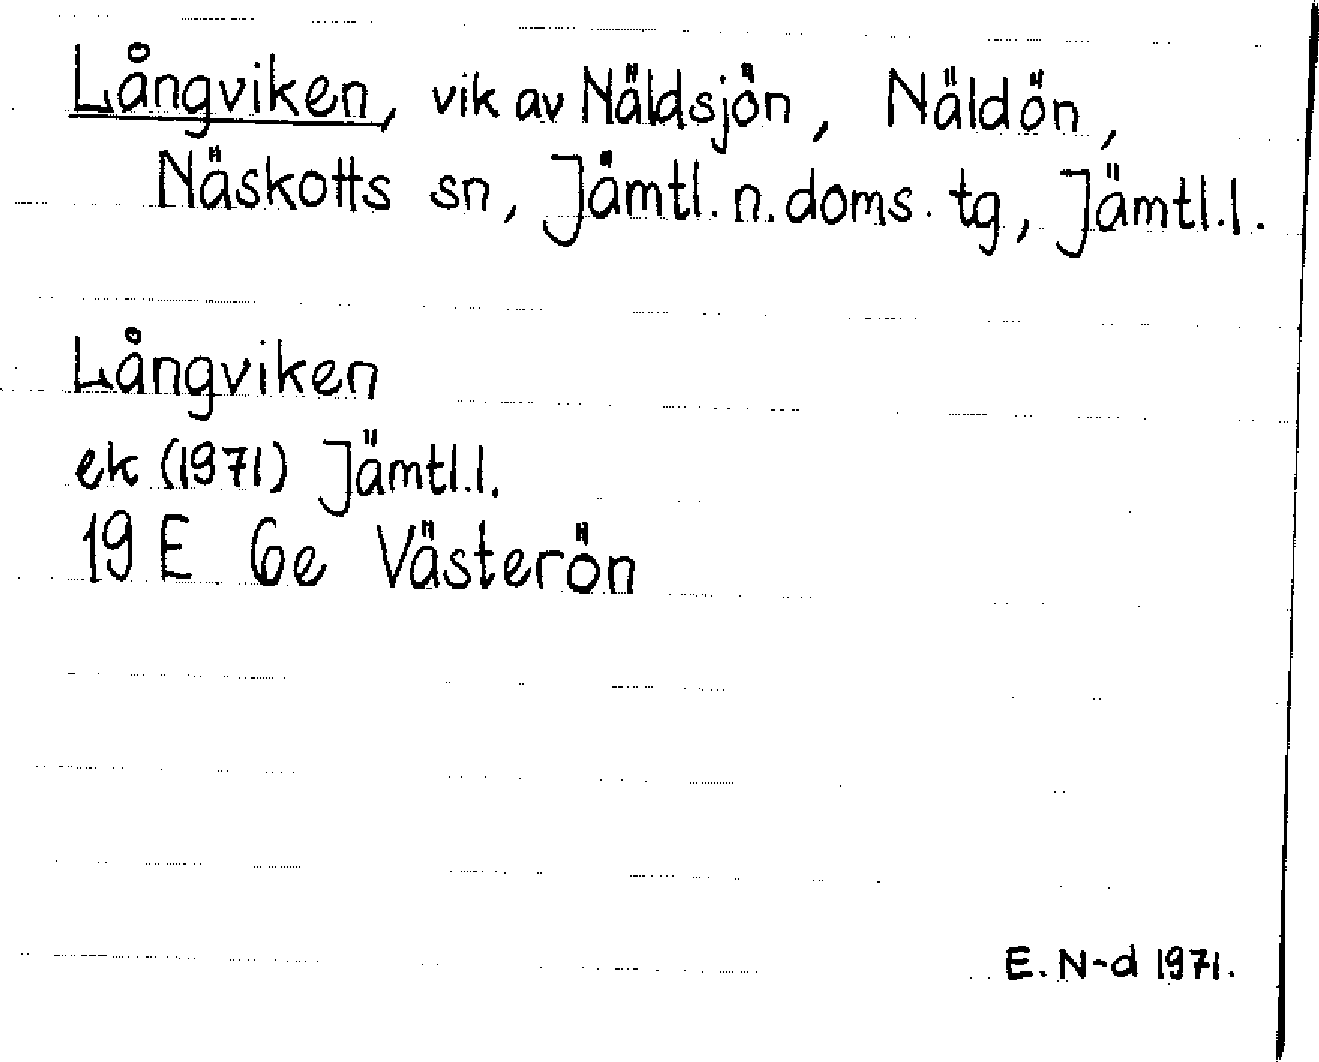 Långviken, vik av Näldsjön, Näldön,
Näskotts sn, Jämtl. n. doms. tg, Jämtl.l.
Långviken
ek (1971) Jämtl.l.
19 E 6e Västerön
E. N-d 1971.